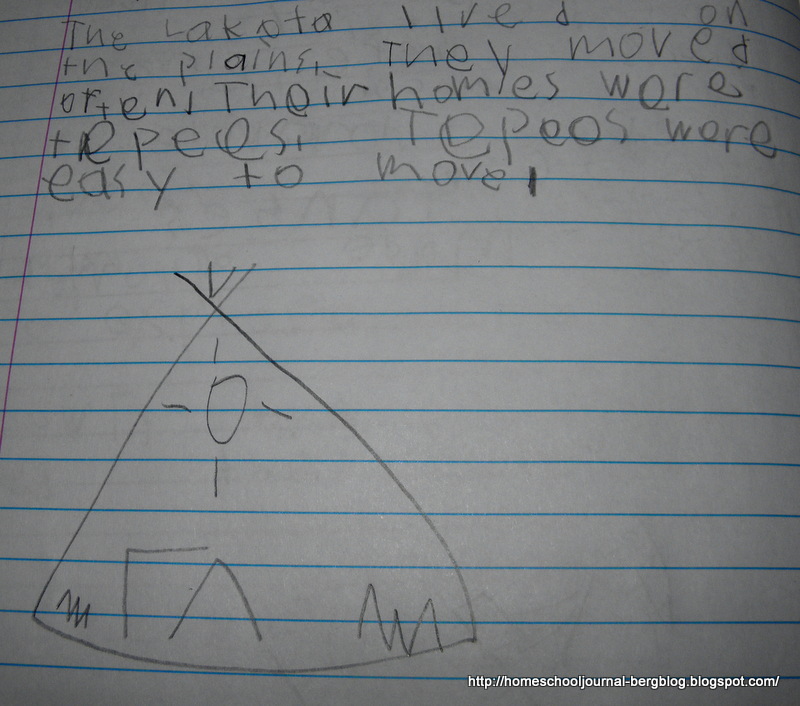 The Lakota lived on
the plains. They moved
often. Their homes were
tepees. Tepees were
easy to move.
http://homeschooljournal-bergblog.blogspot.com/